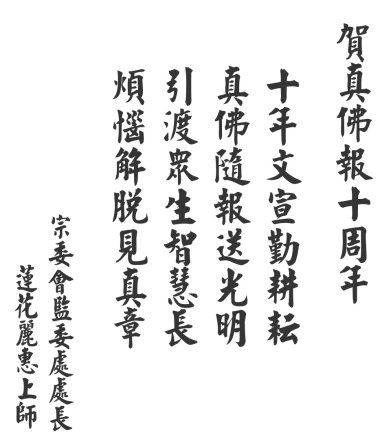 賀真佛報十周年
十年文宣勤耕耘
真佛隨報送光明
引渡眾生智慧長
煩惱解脫見真章
宗委會監委處處長
蓮花麗惠上師